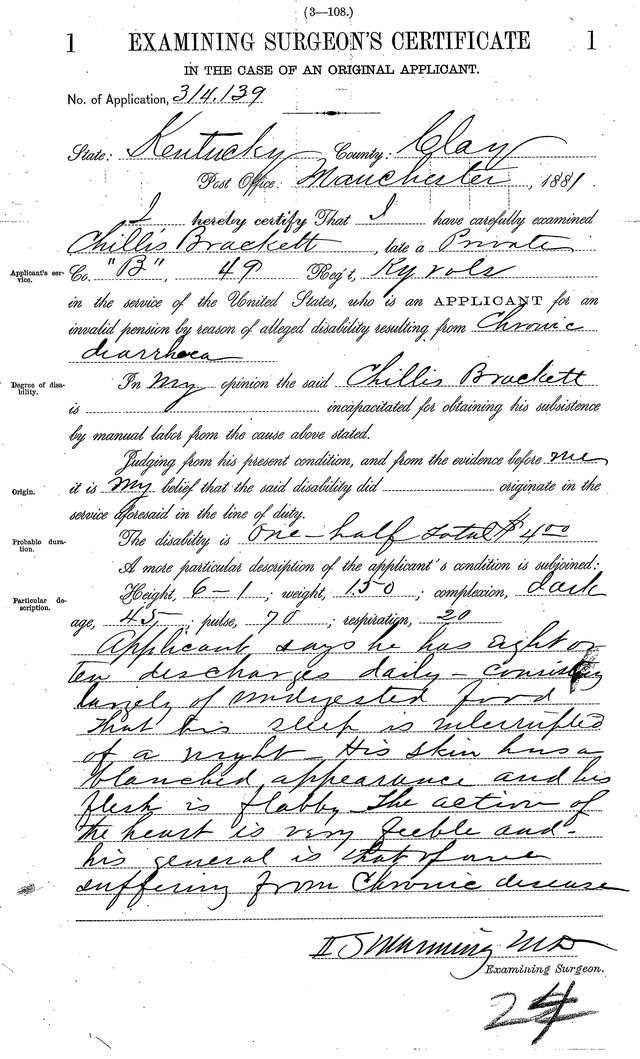 (3—108.)
1 EXAMINING SURGEON'S CERTIFICATE 1
IN THE CASE OF AN ORIGINAL APPLICANT.
No. of Application, 314.139
State: Kentucky County: Clay
Post Office: Manchester, 1881.
I hereby certify That I have carefully examined
Chillis Brackett, late a Private
Applicant's ser-
vice.
Co. "B", 49 Reg't, Ky vols
in the service of the United States, who is an APPLICANT for an
invalid pension by reason of alleged disability resulting from Chronic
diarrhoea
Degree of disa-
bility.
In my opinion the said Chillis Brackett
is incapacitated for obtaining his subsistence
by manual labor from the cause above stated.
Judging from his present condition, and from the evidence before me
Origin.
it is my belief that the said disability did originate in the
service aforesaid in the line of duty.
Probable dura-
tion.
The disability is one-half total $4.00
A more particular description of the applicant's condition is subjoined:
Particular de-
scription.
Height, 6-1; weight, 150; complexion, dark
age, 45; pulse, 70; respiration, 20
Applicant says he has eight or
ten discharges daily - consisting
largely of undigested food
that his sleep is interrupted
of a night - His skin has a
blanched appearance and his
flesh is flabby The action of
the heart is very feeble and
his general is that of one
suffering from Chronic disease
Manning MD
Examining Surgeon.
24